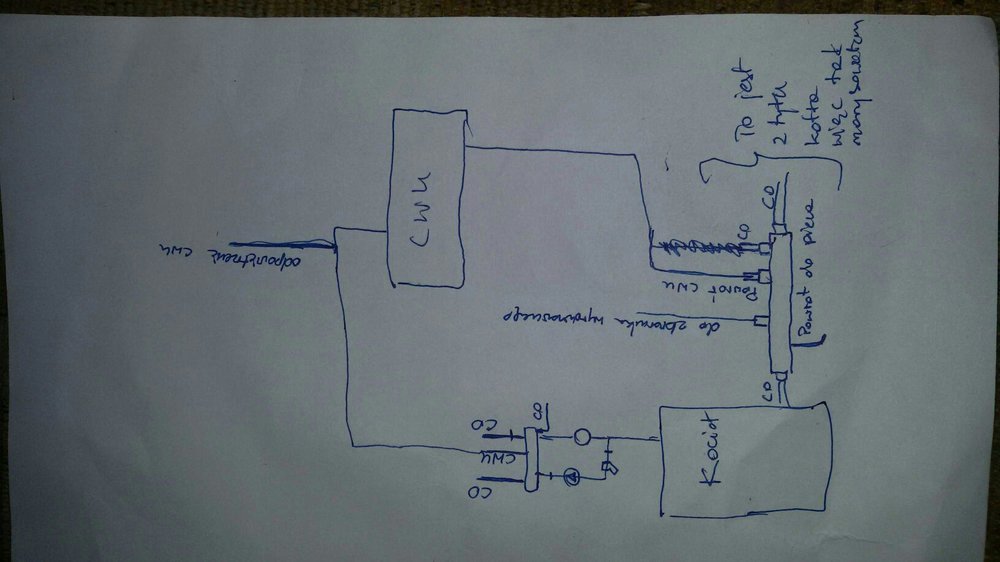 To jest
z tyłu
kotła
więc tak
narysowałem
CWU
odpowietrzenie CWU
CO
CO
Powrót CWU
do zbiornika wyrównawczego
Powrót do pieca
CO
CO
CO
CWU
CO
Kocioł